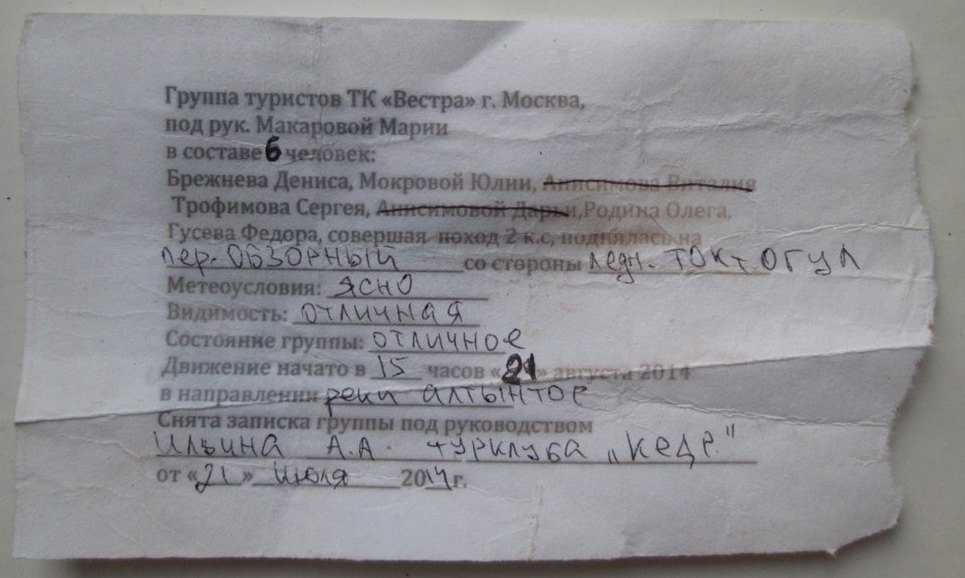 Группа туристов ТК «Вестра» г. Москва,
под рук. Макаровой Марии
в составе 6 человек:
Брежнева Дениса, Мокровой Юлии, Анисимова Виталия
Трофимова Сергея, Анисимовой Дарьи,Родина Олега,
Гусева Федора, совершая поход 2 к.с, поднялась на
пер. ОБЗОРНЫЙ со стороны ледн. ТОКТОГУЛ
Метеоусловия: ЯСНО
Видимость: ОТЛИЧНАЯ
Состояние группы: ОТЛИЧНОЕ
Движение начато в 15 часов «21» августа 2014
в направлении реки АЛТЫНТОР
Снята записка группы под руководством
ИЛЬИНА А.А. ТУРКЛУБА „КЕДР"
от «21» июля 2014г.